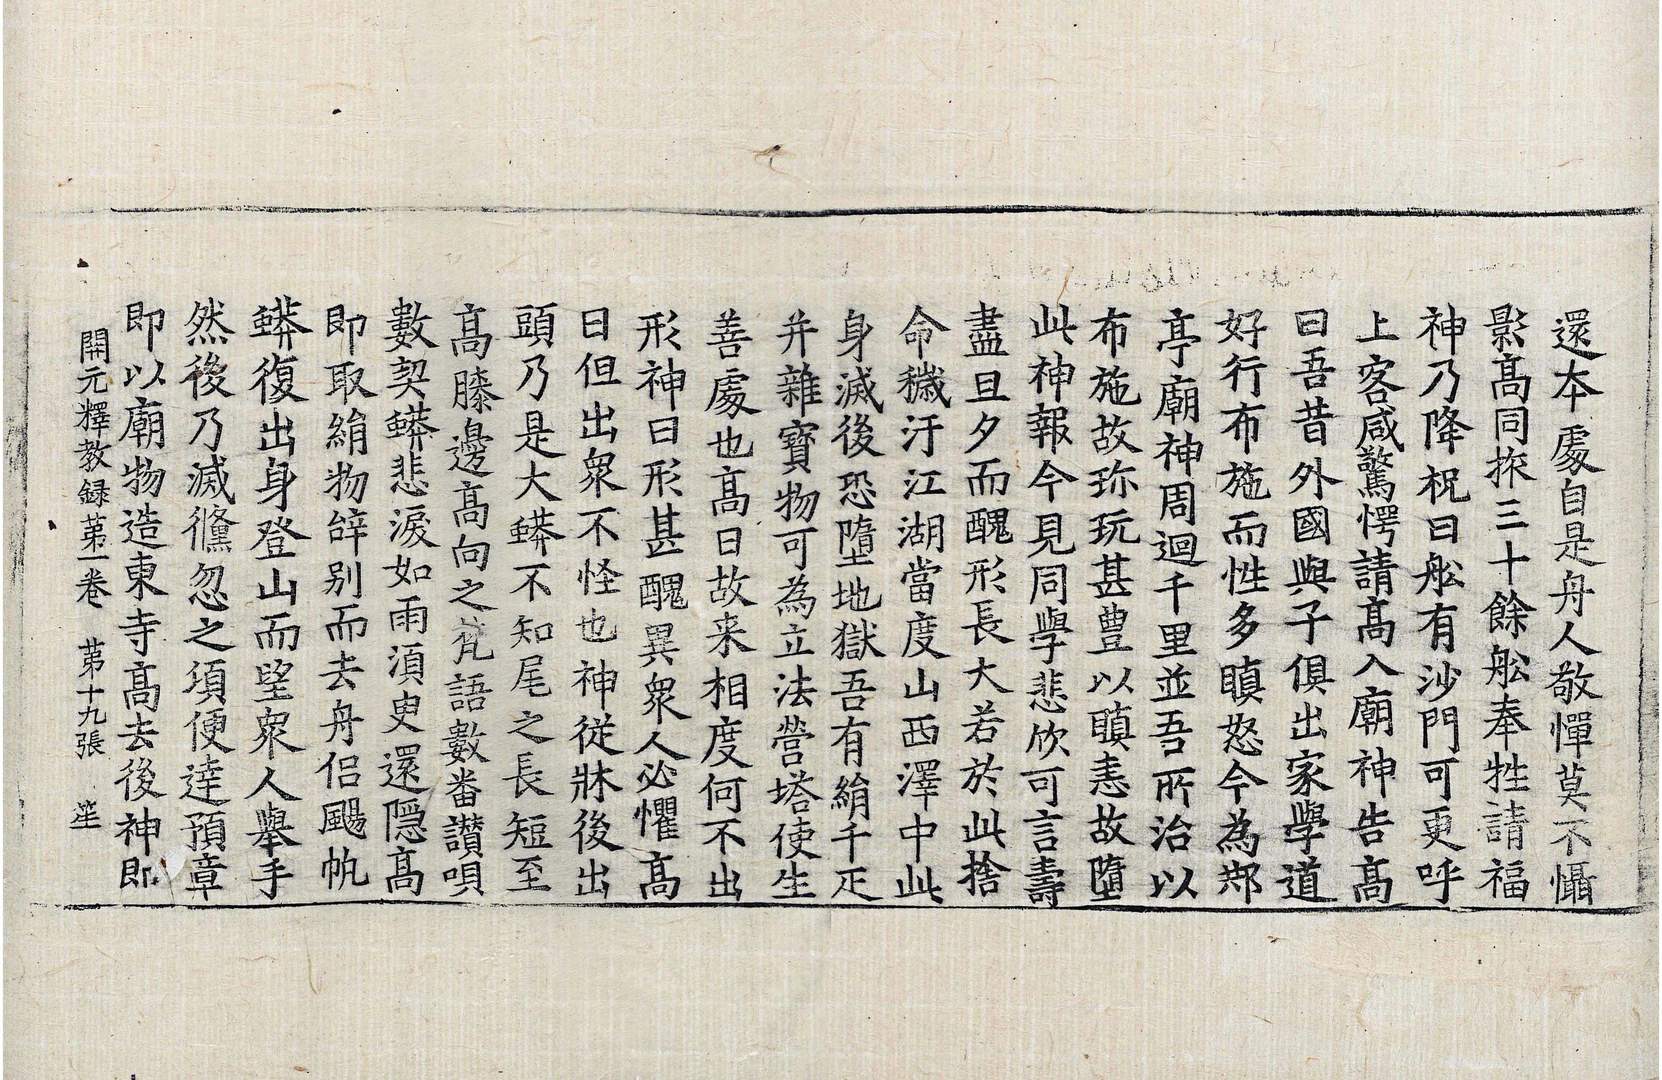 還本處自是舟人敬憚莫不懾
影髙同旅三十餘舩奉牲請福
神乃降祝曰舩有沙門可更呼
上客咸驚愕請髙入廟神告髙
曰吾昔外國與子俱出家學道
好行布施而性多瞋怒今為䢼
亭廟神周迴千里並吾所治以
布施故珎玩甚豊以瞋恚故墮
此神報今見同學悲欣可言壽
盡旦夕而醜形長大若於此捨
命穢汙江湖當度山西澤中此
身滅後恐墮地獄吾有絹千疋
并雜寶物可為立法營塔使生
善處也髙曰故来相度何不出
形神曰形甚醜異衆人必懼髙
曰但出衆不怪也神従牀後出
頭乃是大蟒不知尾之長短至
髙膝邊髙向之梵語數番讃唄
數契蟒悲淚如雨湏臾還隠髙
即取絹物辝别而去舟侣颺帆
蟒復出身登山而望衆人舉手
然後乃滅儵忽之項便逹預章
即以廟物造東寺髙去後神即
開元釋教録苐一卷 苐十九張 笙